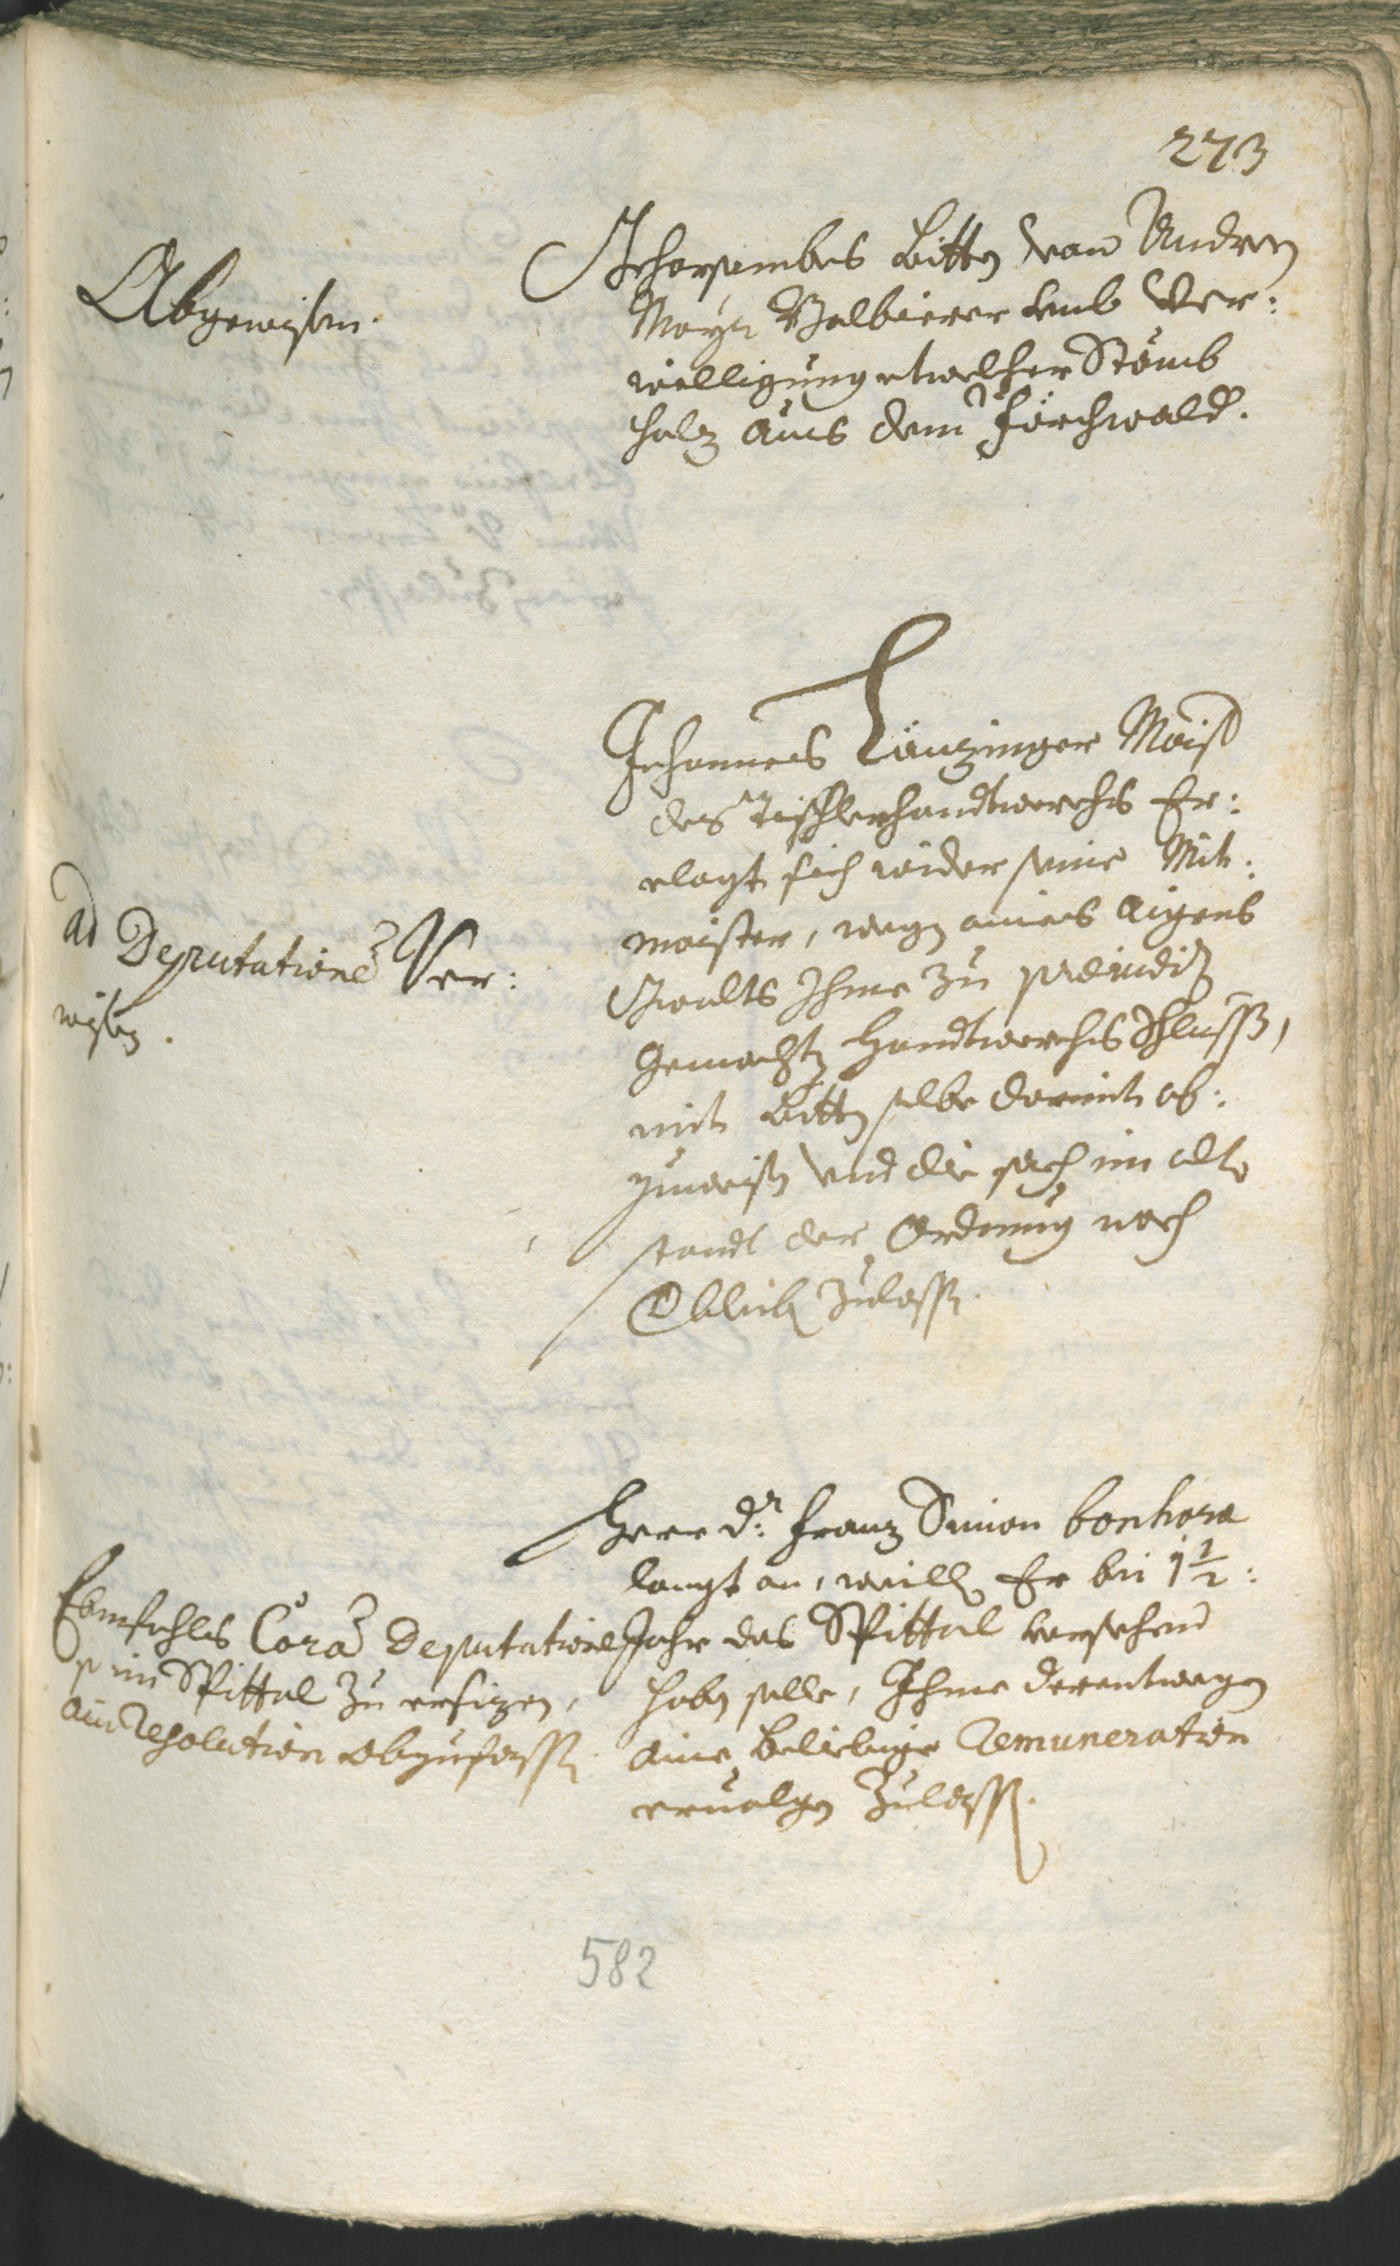 273
Abgewisen.
Gehorsambes Bitten von Andren
Mayr Balbierer umb Ver:
willigung etwelcher Stämb
holz aus dem Förchwald.
Johannes Länzinger Maist
des Tischlerhandtwerchs Er:
clagt sich wider seine Mit:
maister, wegen aines Aigens
Gwalts Ihme zu preiudiz
gemachten Handtwerchs Schlusß,
mit Bitten selbe darmit ab:
zuweisen und die sach im alten
standt der Ordnung nach
zulassen.
ad Deputatione Ver:
wisen.
Herr Dr: Franz Simon bonhora
langt an, weillen Er bei 1 1/2:
Jahr das Spittal versehen
haben solle, Ihme derentwegen
aine beliebige Remuneration
ervolgen zulassen.
Corã Deputatione
im Spittal zu
ain Resolution abzufassen.
582